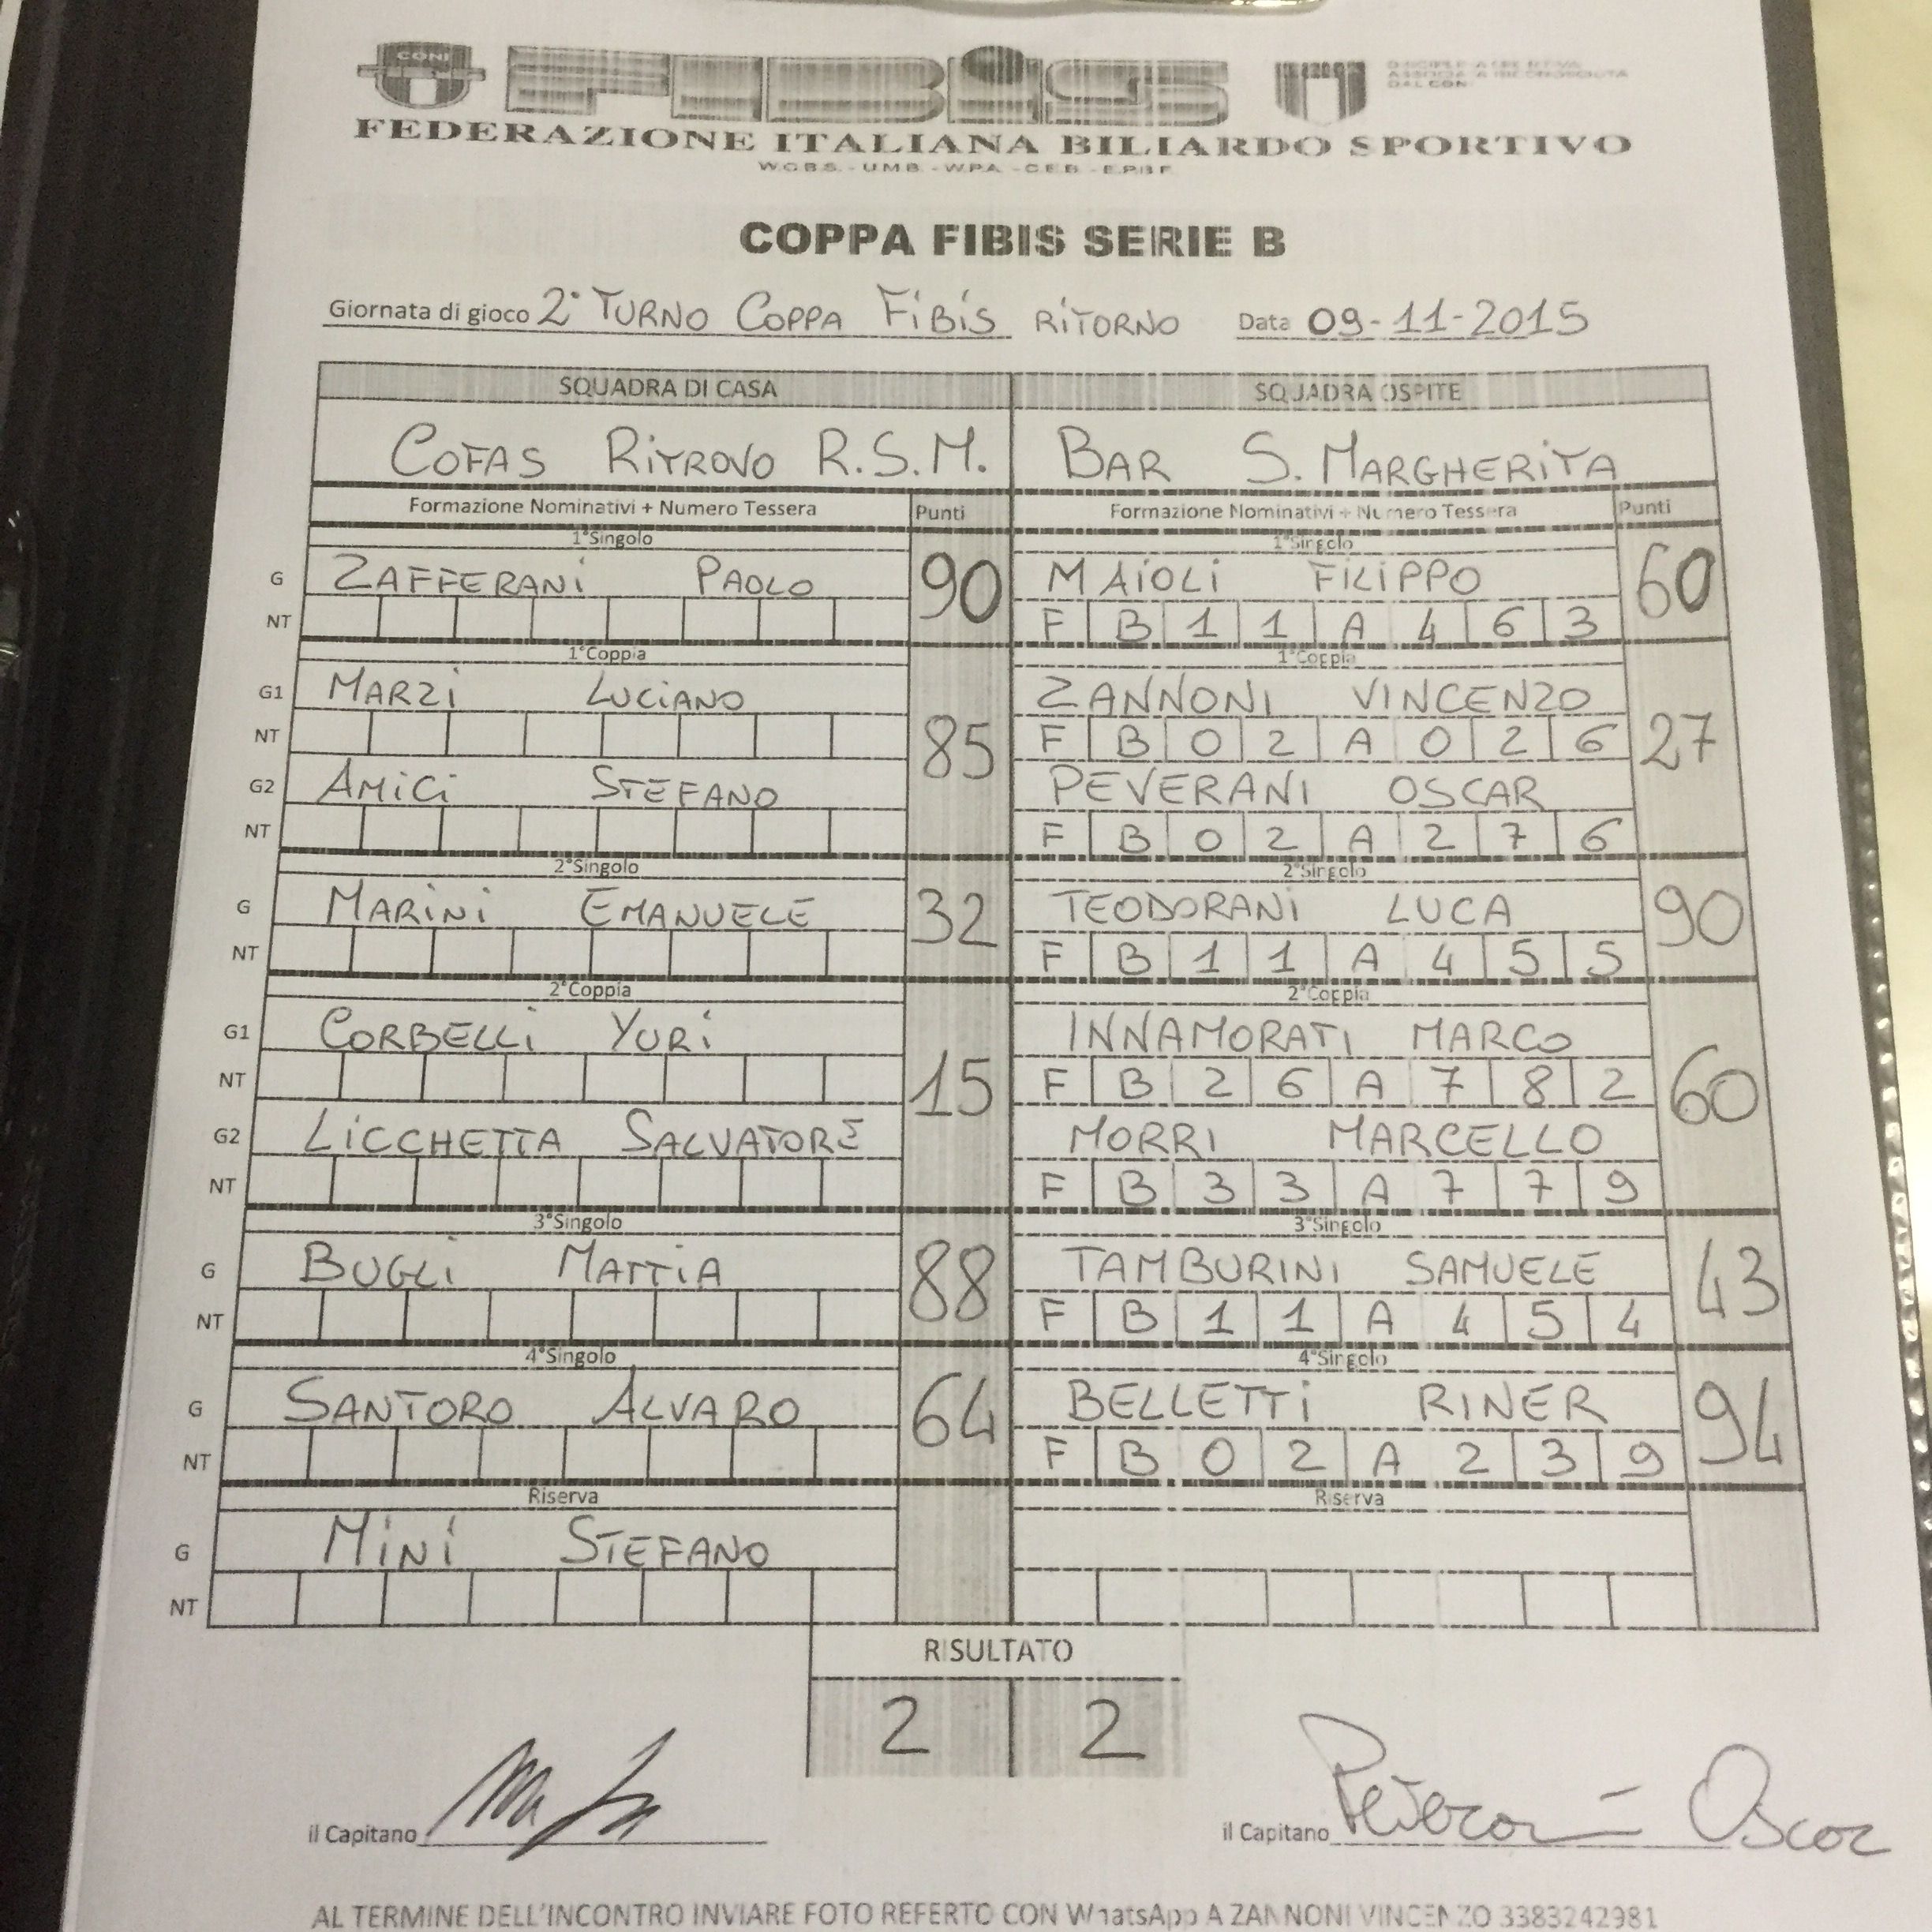 CONI
FIBiS
DISCIPLINA SPORTIVA
ASSOCIATA RICONOSCIUTA
DAL CONI
FEDERAZIONE ITALIANA BILIARDO SPORTIVO
W.C.B.S. - U.M.B. - W.P.A. - C.E.B. - E.P.B.F.
COPPA FIBIS SERIE B
Giornata di gioco 2° TURNO COPPA FIBIS RITORNO Data 09-11-2015
SQUADRA DI CASA SQUADRA OSPITE
COFAS RITROVO R.S.M. BAR S. MARGHERITA
Formazione Nominativi + Numero Tessera Punti Formazione Nominativi + Numero Tessera Punti
1°Singolo 1°Singolo
G ZAFFERANI PAOLO 90 MAIOLI FILIPPO 60
NT F B 1 1 A 4 6 3
1°Coppia 1°Coppia
G1 MARZI LUCIANO ZANNONI VINCENZO
NT 85 F B 0 2 A 0 2 6 27
G2 AMICI STEFANO PEVERANI OSCAR
NT F B 0 2 A 2 7 6
2°Singolo 2°Singolo
G MARINI EMANUELE 32 TEODORANI LUCA 90
NT F B 1 1 A 4 5 5
2°Coppia 2°Coppia
G1 CORBELLI YURI INNAMORATI MARCO
NT 15 F B 2 6 A 7 8 2 60
G2 LICCHETTA SALVATORE MORRI MARCELLO
NT F B 3 3 A 7 7 9
3°Singolo 3°Singolo
G BUGLI MATTIA 88 TAMBURINI SAMUELE 43
NT F B 1 1 A 4 5 4
4°Singolo 4°Singolo
G SANTORO ALVARO 64 BELLETTI RINER 94
NT F B 0 2 A 2 3 9
Riserva Riserva
G MINI STEFANO
NT
RISULTATO
2 2
il Capitano il Capitano Peverani Oscar
AL TERMINE DELL'INCONTRO INVIARE FOTO REFERTO CON WhatsApp A ZANNONI VINCENZO 3383242981